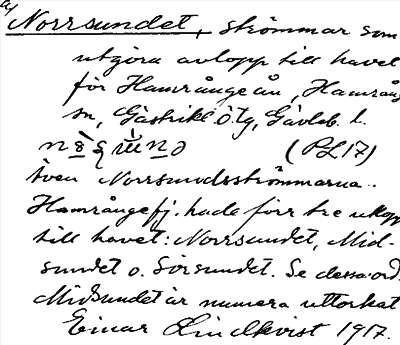 a/
Norrsundet, strömmar som
utgöra avlopp till havet
för Hamrånge ån, Hamrång
sn, Gästrikl. Ö. Tg, Gävleb. l.
(PL17)
även Norrsundsströmmarna.
Hamrångefj. hade förr tre utlopp
till havet: Norrsundet, Mid-
sundet o. Sörsundet. Se dessa ord.
Midsundet är numera uttorkat
Einar Lindkvist 1917.